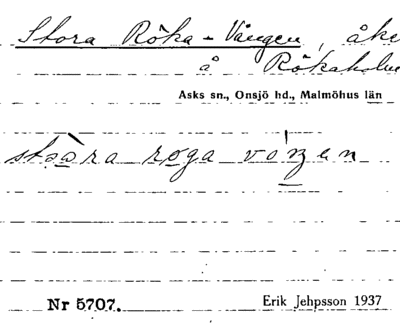 Stora Röka-Vången, åke
å Rökaholm
Asks sn., Onsjö hd., Malmöhus län
stoàra roga voŋen
Nr 5707. Erik Jehpsson 1937